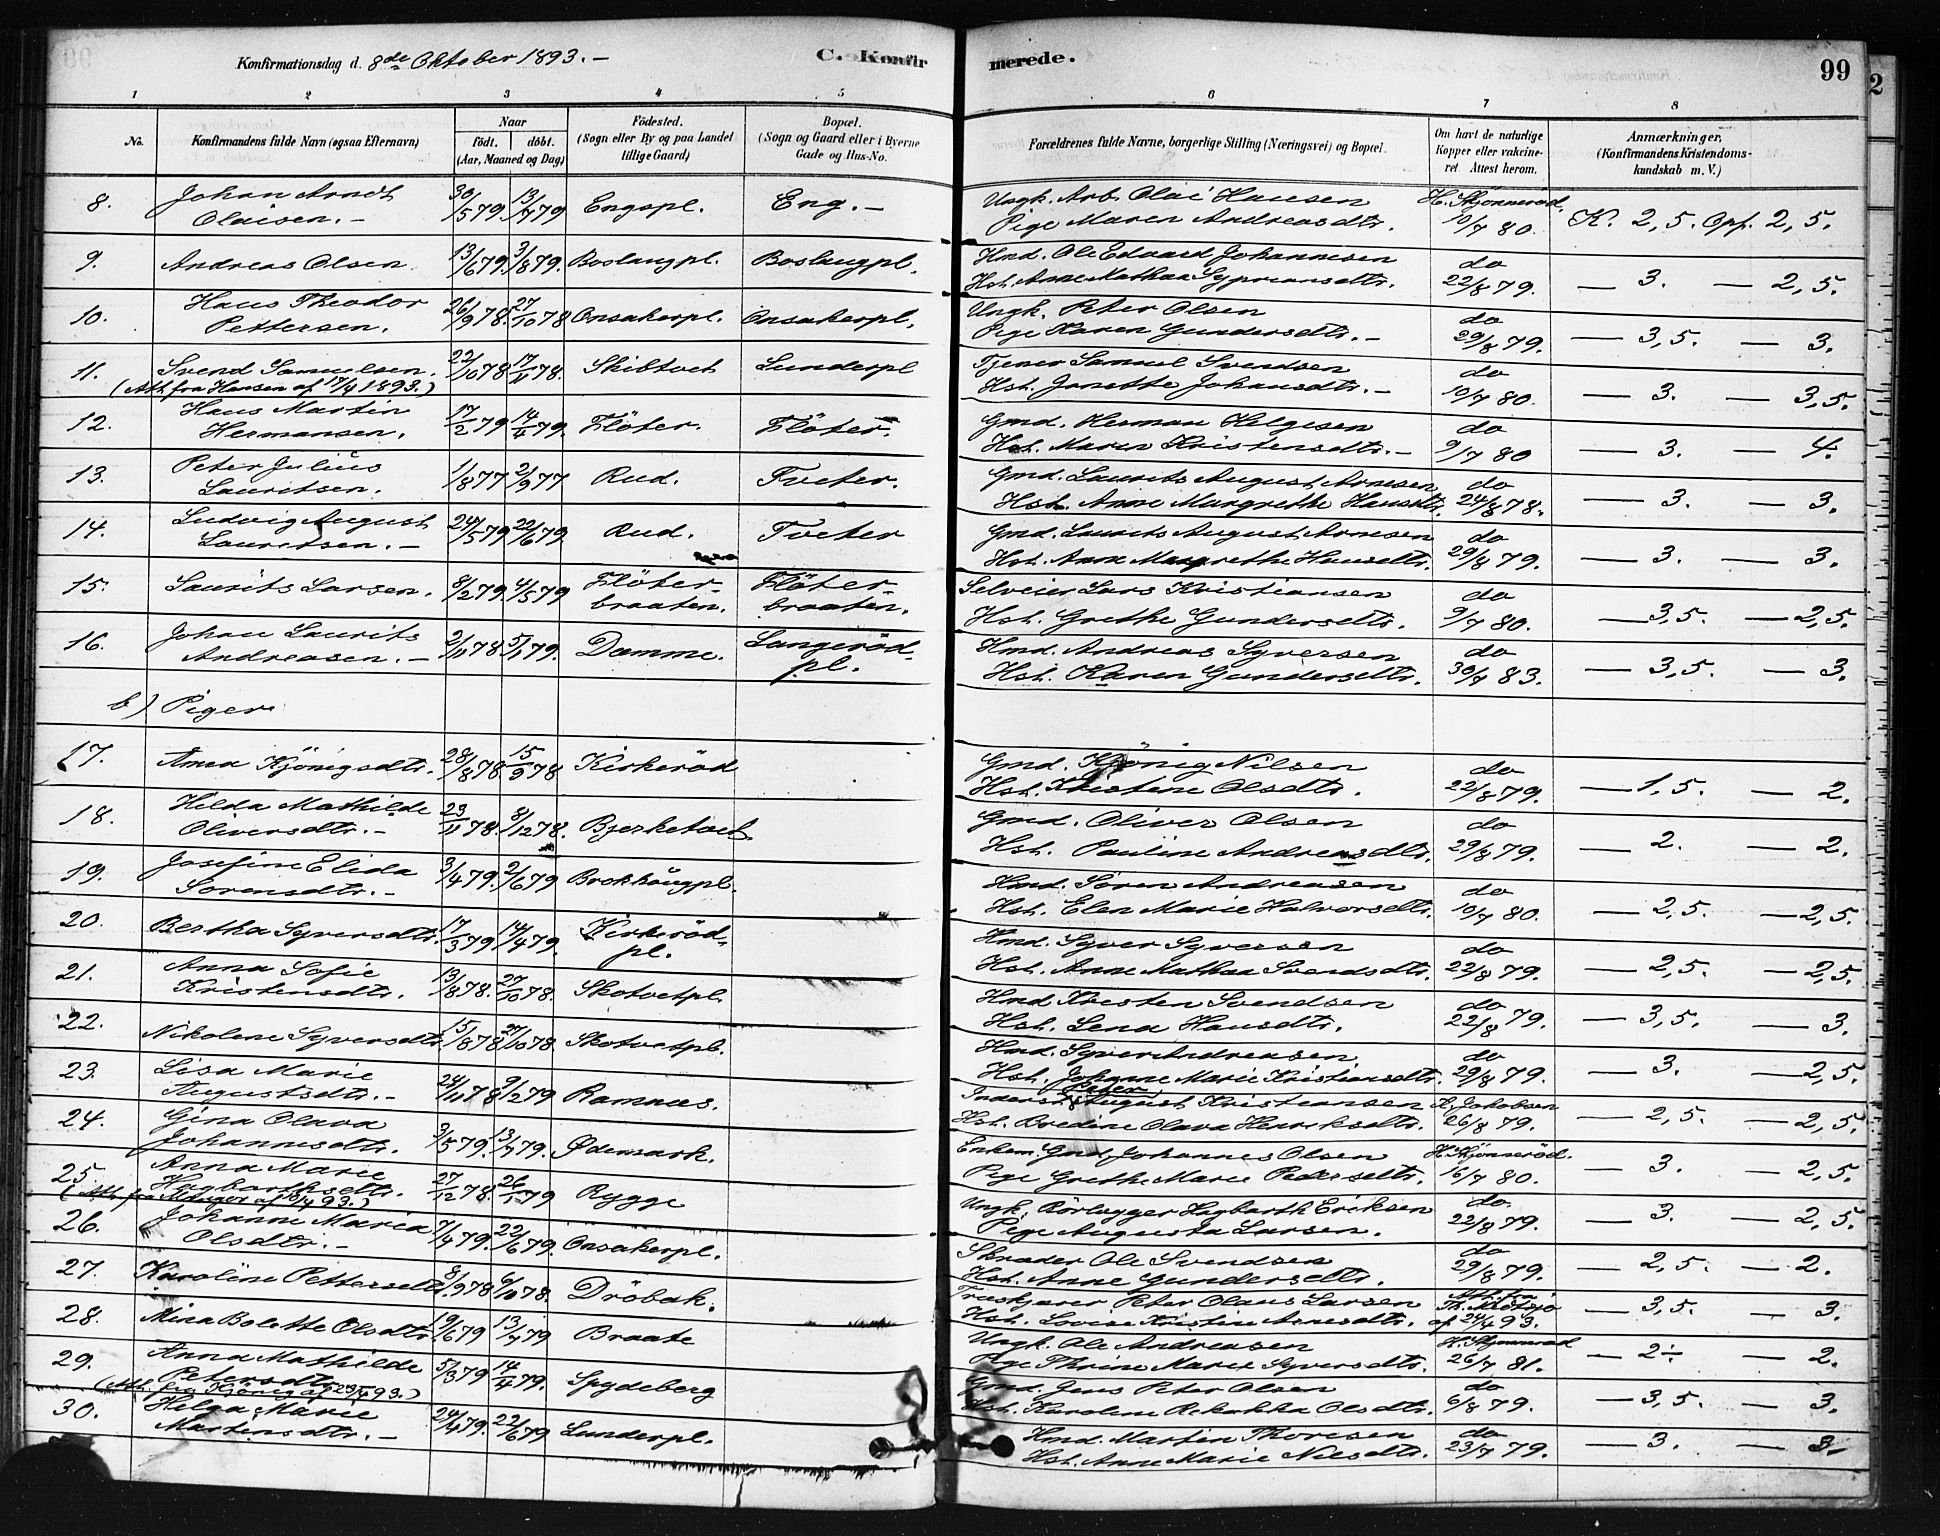 Konfirmationsdag d. 8de Oktober 1893. –
C. Konfirmerede.
99
1 2 3 4 5 6 7 8
No.
Konfirmandens fulde Navn (ogsaa Efternavn)
Naar
Födt. döbt.
(Aar, Maaned og Dag)
Födested.
(Sogn eller By og paa Landet
tillige Gaard)
Bopæl.
(Sogn og Gaard eller i Byerne
Gade og Hus-No.
Forældrenes fulde Navne, borgerlige Stilling (Næringsvei) og Bopæl.
Om havt de naturlige
Kopper eller vakcine-
ret Attest herom.
Anmærkninger,
(Konfirmandens Kristendoms-
kundskab m. V.)
8. Johan Arndt Olaisen. – 30/5 79. 13/7 79 Engspl. Eng. – Ungk. Arb. Olai Hansen Pige Maren Andreasdtr. H. Skjönneröd. 10/7 80. K. 2,5. Opf. 2,5.
9. Andreas Olsen. 13/6 79. 3/8 79. Boslangpl. Boslangpl. Hmd. Ole Edvard Johannesen Hst. Anne Mathea Sypriansdtr. do 22/8 79. — 3. — 2,5.
10. Hans Theodor Pettersen. 26/9 78. 27/10 78 Onsakerpl. Onsakerpl. Ungk. Peter Olsen Pige Karen Gundersdtr. – do 29/8 79. — 3,5. — 3.
11. Svend Samuelsen. (Att. fra Hansen af 17/4 1893.) 22/10 78 17/11 78. Skibtvet Lunderpl Tjener Samuel Svendsen Hst. Janette Johansdtr. – do 10/7 80. — 3. — 3,5.
12. Hans Martin Hermansen. 17/2 79 14/4 79. Flöter. Flöter. Gmd. Herman Helgesen Hst. Maren Kristensdtr. – do 9/7 80 — 3. — 4.
13. Peter Julius Lauritsen. 1/8 77 2/9 77 Rud. Tveter. Gmd. Laurits August Arnesen Hst. Anne Margrethe Hansdtr. do 24/8 78. — 3. — 3.
14. Ludvig August Lauritsen. – 24/5 79 22/6 79 Rud. Tveter Gmd. Laurits August Arnesen Hst. Anne Margrethe Hansdtr. do 29/8 79. — 3. — 3.
15. Laurits Larsen. 8/2 79. 4/5 79 Flöter-braaten. Flöter-braaten. Selveier Lars Kristiansen Hst. Grethe Gundersdtr. do 9/7 80. — 3,5. — 2,5.
16. Johan Laurits Andreasen. – 2/11 78 5/1 79. Damme. Langeröd-pl. Hmd. Andreas Syversen Hst. Karen Gundersdtr. do 30/7 83. — 3,5. — 3.
b) Piger
17. Anna Kjönigsdtr. 28/8 78 15/9 78 Kirkeröd Gmd. Kjönig Nilsen Hst. Kristine Olsdtr. do 22/8 79. — 1,5. — 2.
18. Hilda Mathilde Oliversdtr. – 23/11 78. 8/12 78. Bjerketvet Gmd. Oliver Olsen Hst. Pauline Andreasdtr. do 29/8 79. — 2. — 2.
19. Josefine Elida Sorensdtr. – 3/4 79. 2/6 79 Brekhaugpl. Hmd. Soren Andreasen Hst. Elen Marie Halvorsdtr. do 10/7 80. — 2,5. — 2,5.
20. Bertha Syversdtr. 17/3 79 14/4 79. Kirkeröd-pl. Hmd. Syver Syversen Hst. Anne Mathea Svendsdtr. do 22/8 79. — 2,5. — 2,5.
21. Anna Sofie Kristensdtr. 13/8 78. 27/10 78. Skotvetpl. Hmd Kristen Svendsen Hst. Lena Hansdtr. do 22/8 79. — 3,5. — 3.
22. Nikolene Syversdtr. 15/8 78 27/10 78. Skotvetpl. Hmd. Syver Andreasen Hst. Johanne Marie Kristiansdtr. do 29/8 79. — 3. — 2,5.
23. Lisa Marie Augustsdtr. – 24/11 78 9/2 79 Ramnæs. Inderst Peder August Kristiansen Hst. Bredine Olava Henriksdtr. L. Jakobsen 26/8 79. — 2,5. — 2,5.
24. Gina Olava Johannesdtr. 3/5 79. 13/7 79. Ödemark. Enkem. Gmd Johannes Olsen Pige Grethe Marie Pedersdtr. H. Skjönneröd. 16/7 80. — 3. — 2,5.
25. Anna Marie Hagbarthsdtr. 27/12 78. 26/1 79 Rygge Ungk. Rörlægger Hagbarth Eriksen Pige Augusta Larsen. do. 22/8 79. — 3. — 2,5.
26. Johanne Maria Olsdtr. – 7/4 79. 22/6 79. Onsakerpl. Skræder Ole Svendsen Hst. Anne Gundersdtr. do 29/8 79. — 2,5. — 2.
27. Karoline Pettersdtr. 8/9 78 6/10 78. Dröbak. Træskjærer Peter Olaus Larsen Hst. Lovise Kristine Arnesdtr. Att. fra af 24/4 93. — 3,5. — 3.
28. Mina Bolette Olsdtr. 19/6 79 13/7 79 Braate Ungk. Ole Andreasen Pige Thrine Marie Syversdtr. H. Skjönneröd 26/7 81. — 2÷ — 2.
29. Anna Mathilde Petersdtr. (Att. fra Kjönig af 23/4 93.) 5/3 79 14/4 79. Spydeberg Gmd. Jens Peter Olsen Hst. Karoline Rebekka Olsdtr. do 6/8 79. — 3,5. — 3.
30. Helga Marie Martinsdtr. – 24/4 79. 22/6 79 Lunderpl. Hmd. Martin Thoresen Hst. Anne Marie Nilsdtr. do 23/7 79. — 3. — 3.